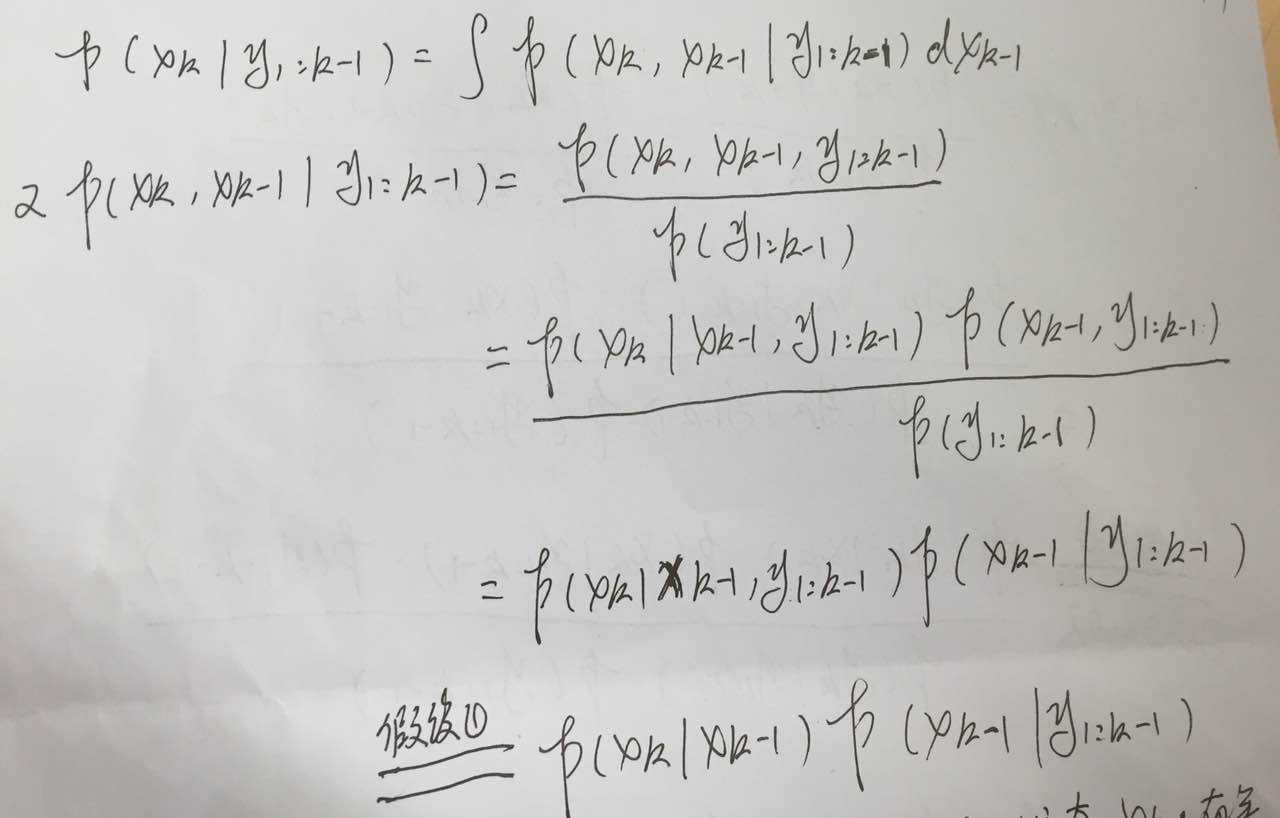 p(x_k | y_{1:k-1}) = ∫ p(x_k, x_{k-1} | y_{1:k-1}) dx_{k-1}
2 p(x_k, x_{k-1} | y_{1:k-1}) = p(x_k, x_{k-1}, y_{1:k-1}) / p(y_{1:k-1})
= p(x_k | x_{k-1}, y_{1:k-1}) p(x_{k-1}, y_{1:k-1}) / p(y_{1:k-1})
= p(x_k | x_{k-1}, y_{1:k-1}) p(x_{k-1} | y_{1:k-1})
假设① = p(x_k | x_{k-1}) p(x_{k-1} | y_{1:k-1})